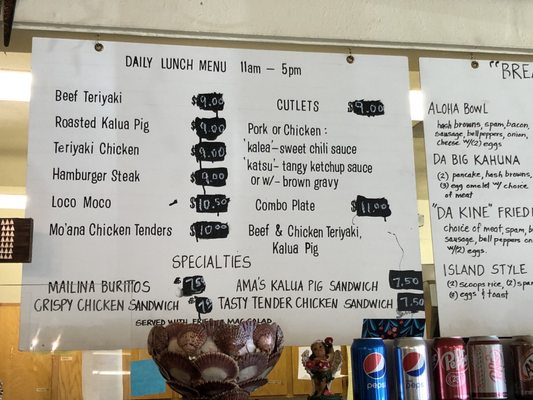 DAILY LUNCH MENU 11am - 5pm
Beef Teriyaki $9.00
Roasted Kalua Pig $9.00
Teriyaki Chicken $9.00
Hamburger Steak $9.00
Loco Moco $10.50
Mo'ana Chicken Tenders $10.00
CUTLETS $9.00
Pork or Chicken:
'kalea'- sweet chili sauce
'katsu'- tangy ketchup sauce
or w/- brown gravy
Combo Plate $11.00
Beef & Chicken Teriyaki,
Kalua Pig
SPECIALTIES
MAILINA BURRITOS
CRISPY CHICKEN SANDWICH
AMA'S KALUA PIG SANDWICH 7.50
TASTY TENDER CHICKEN SANDWICH 7.50
SERVED WITH FRIES OR MAC SALAD
"BREA
ALOHA BOWL
hash browns, spam, bacon,
sausage, bell peppers, onion,
cheese w/(2) eggs
DA BIG KAHUNA
(2) pancake, hash browns,
(3) egg omelet w/ choice
of meat
"DA KINE" FRIED
choice of meat, spam, b
sausage, bell peppers, on
w/(2) eggs.
ISLAND STYLE
(2) scoops rice,
(3) eggs & toast
pepsi
pepsi